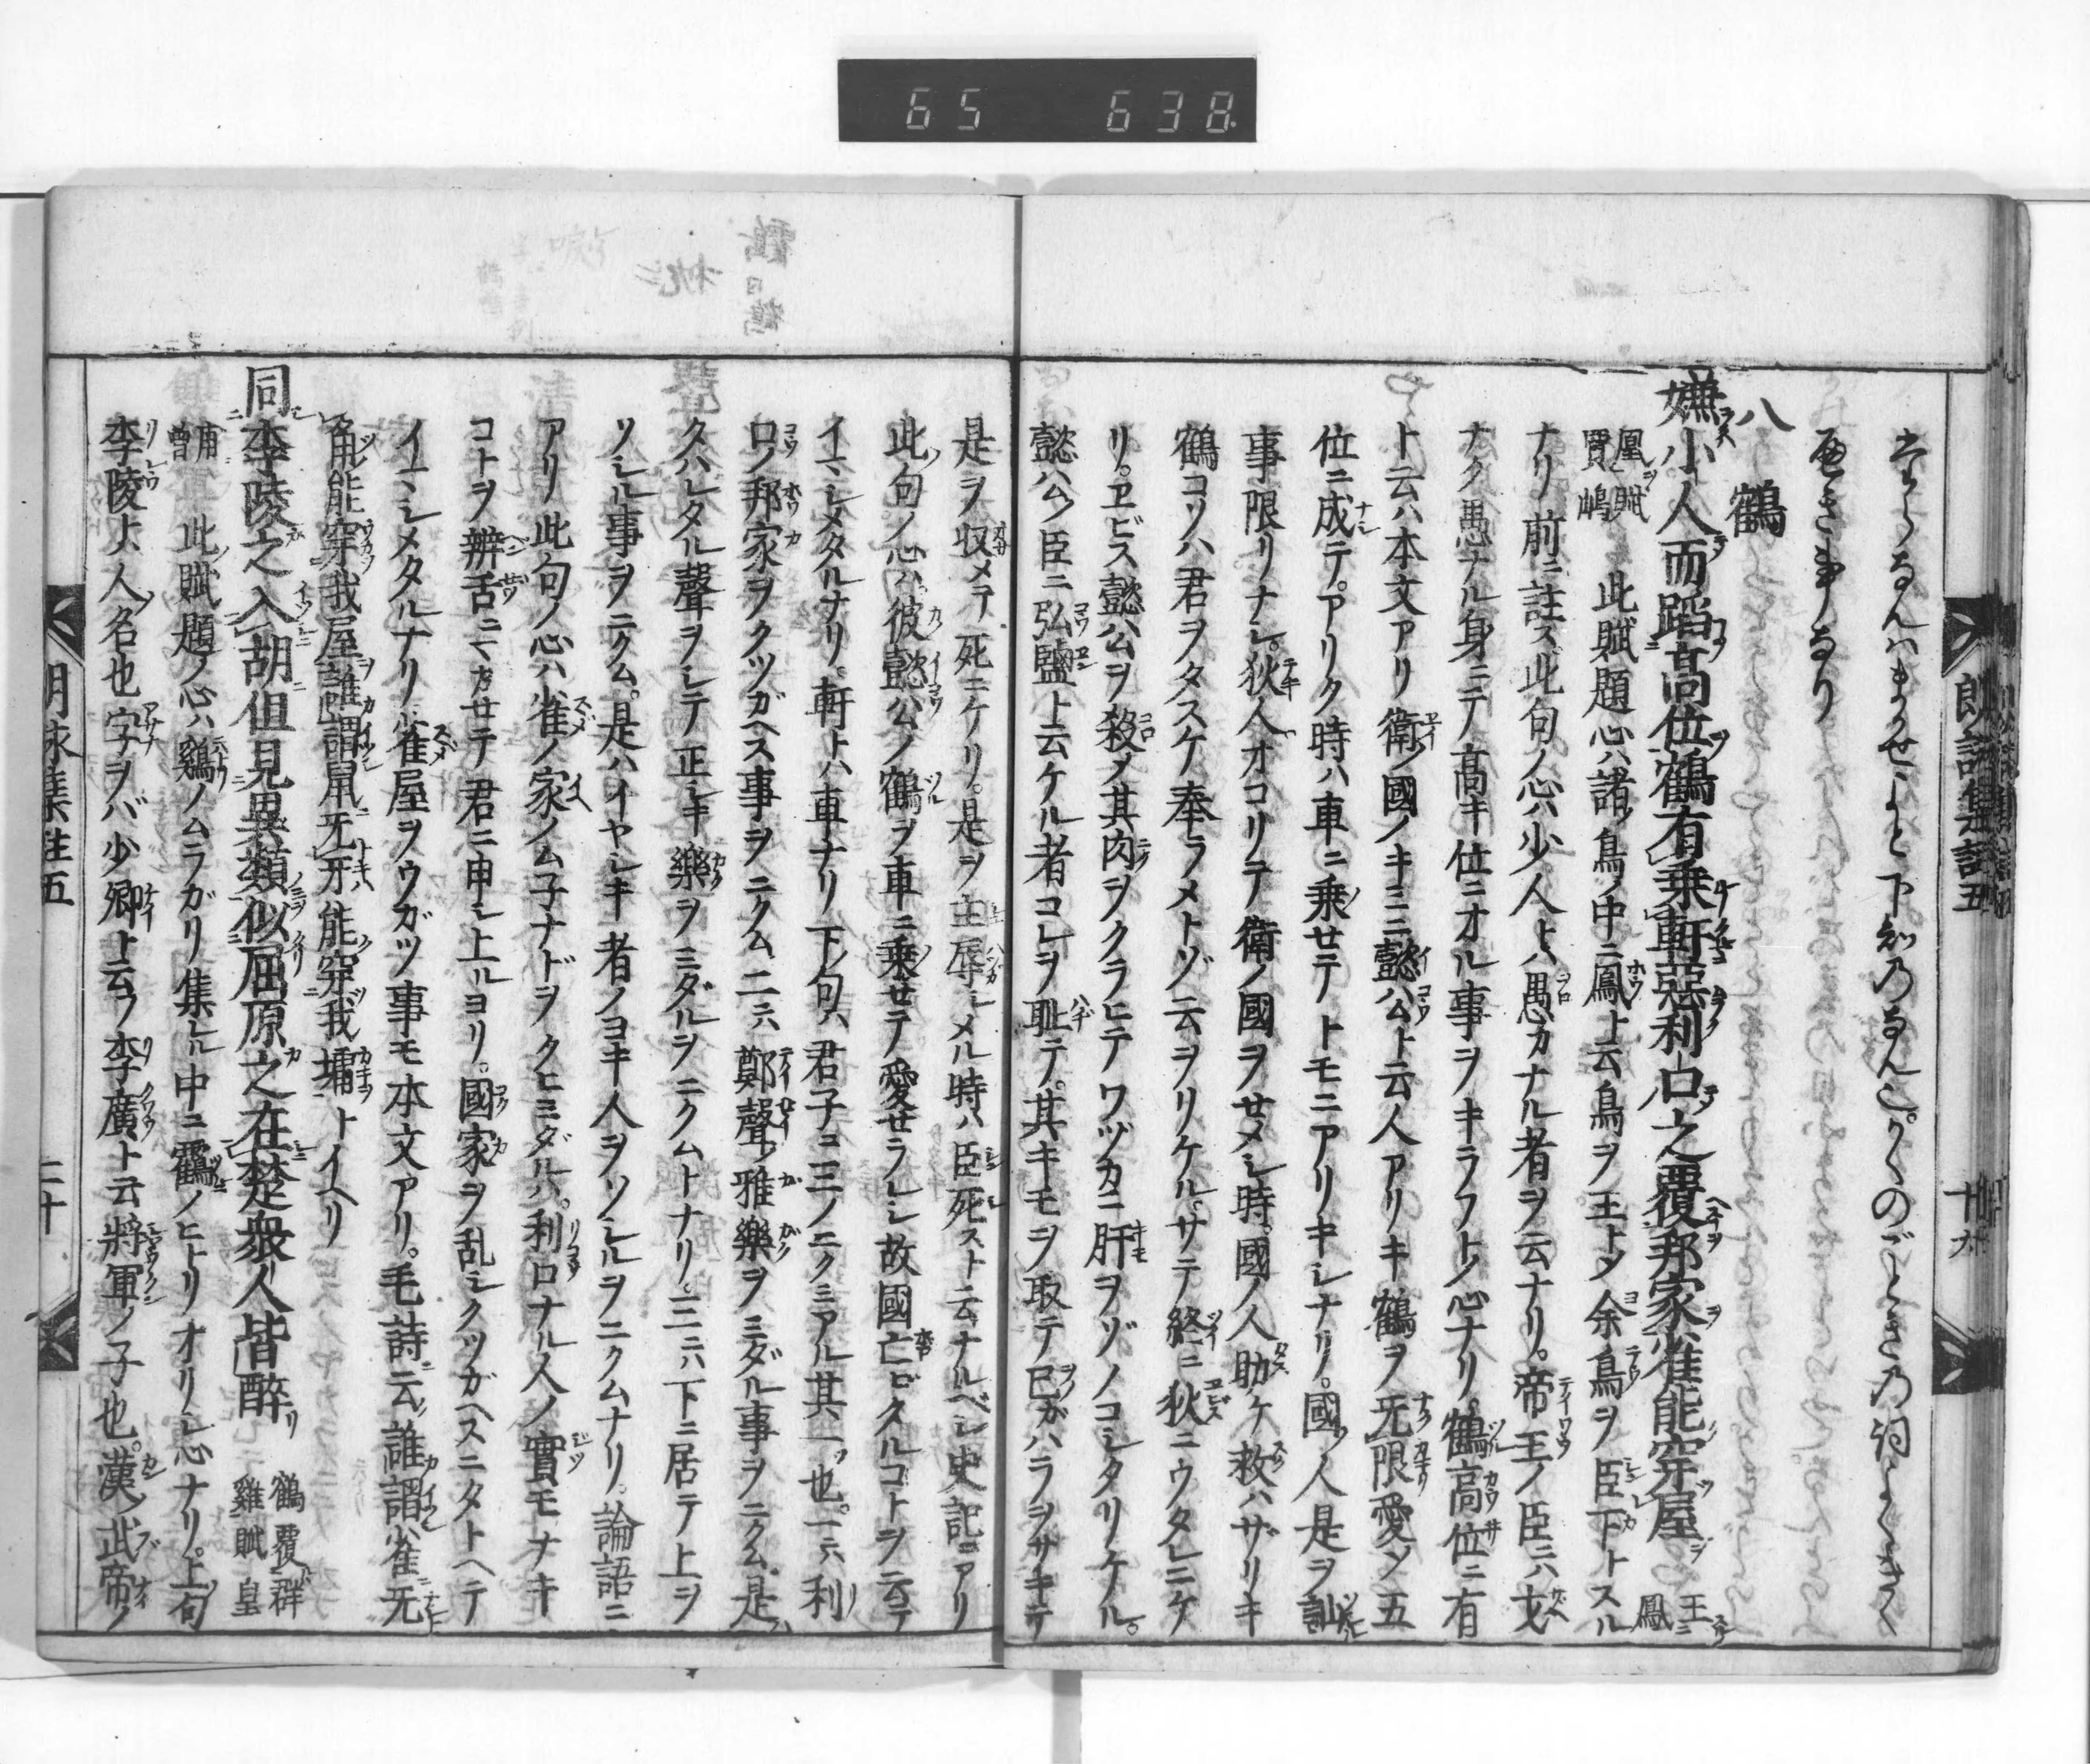 65 638
八 鶴
嫌小人而蹈高位鶴有乗軒惡利口之覆邦家雀能穿屋
鳳 王
賈嵨 凰賦 此賦題心ハ諸ノ鳥ノ中ニ鳳ト云鳥ヲ王トシ余鳥ヲ臣下トスル
ナリ前ニ註ズ此句ノ心ハ少人トハ愚カナル者ヲ云ナリ。帝王ノ臣ニハ才
ナク愚ナル身ニテ高キ位ニオル事ヲキラフトノ心ナリ。鶴高位ニ有
ト云ハ本文アリ衛ノ國ノキミニ懿公ト云人アリキ鶴ヲ无限愛シ五
位ニ成テ。アリク時ハ車ニ乗セテトモニアリキシナリ。國ノ人是ヲ訕
事限リナシ。狄人オコリテ衛ノ國ヲせメシ時。國ノ人助ケ救ハザリキ
鶴コソハ君ヲタスケ奉ラメトゾ云ヲリケル。サテ終ニ狄ニウタレニケ
リ。ヱビス懿公ヲ殺シ其肉ヲクラヒテワヅカニ肝ヲゾノコシタリケル。
懿公ノ臣ニ弘䀋ト云ケル者コレヲ耻テ。其キモヲ取テ己ガハラヲサキテ
是ヲ収メテ死ニケリ。是ヲ主辱シメル時ハ臣死スト云ナルベシ史記ニアリ
此句ノ心ハ彼懿公ノ鶴ヲ車ニ乗せテ愛せラレシ故國亡ビタルコトヲ云テ
イマシメタルナリ。軒トハ車ナリ下句ハ君子コ三ノニクミアル其一ツ也。一ニハ利
口ノ邦家ヲクツガヘス事ヲニクム二ニハ鄭聲ノ雅樂ヲミダル事ヲニクム是
クハレタル聲ヲシテ正シキ樂ヲミダルヲニクムトナリ。三ニハ下ニ居テ上ヲ
ソシル事ヲニクム。是ハイヤシキ者ノヨキ人ヲソシルヲニクムナリ。論語ニ
アリ此句ノ心ハ雀ノ家ノム子ナドヲクヒミダルハ。利口ナル人ノ實モナキ
コトヲ辨舌ニマカせテ君ニ申シ上ルヨリ。國家ヲ乱シクツガヘスニタトヘテ
イマシメタルナリ雀屋ヲウガツ事モ本文アリ。毛詩ニ云誰謂雀无
角能穿我屋誰謂鼠无牙能穿我墉トイヘリ
同李陵之入胡但見異類似屈原之在楚衆人皆醉 鶴覆群雞賦 皇
甫曾 此賦題ノ心ハ鷄ノムラガリ集ル中ニ鶴ノヒトリオリシ心ナリ。上句
李陵ト人名也字ヲバ少卿ト云フ李廣ト云將軍ノ子也。漢ノ武帝ノ